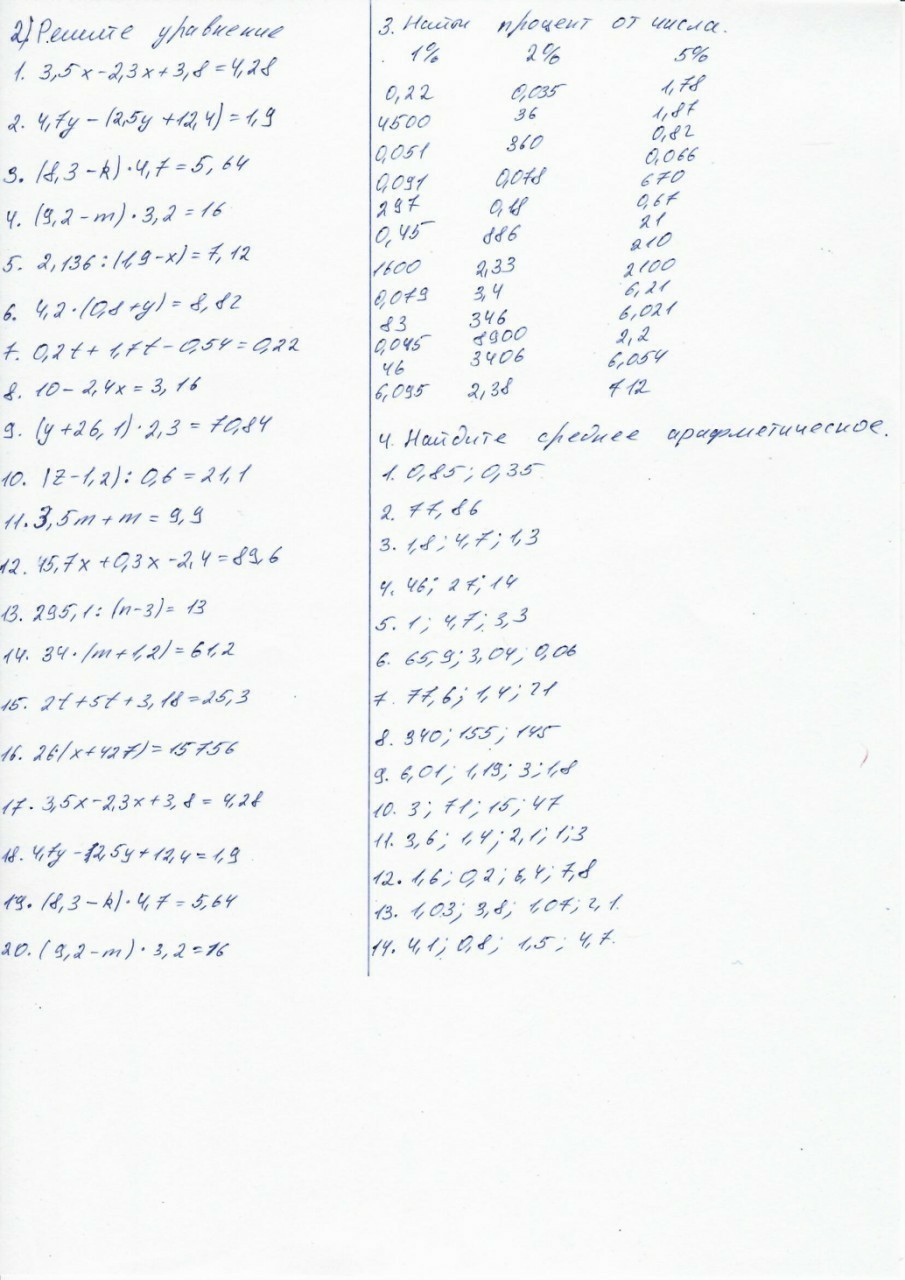 2) Решите уравнение
1. 3,5x-2,3x+3,8=4,28
2. 4,7y-(2,5y+12,4)=1,9
3. (8,3-k)·4,7=5,64
4. (9,2-m)·3,2=16
5. 2,136:(1,9-x)=7,12
6. 4,2·(0,8+y)=8,82
7. 0,2t+1,7t-0,54=0,22
8. 10-2,4x=3,16
9. (y+26,1)·2,3=70,84
10. (z-1,2):0,6=21,1
11. 3,5m+m=9,9
12. 45,7x+0,3x-2,4=89,6
13. 295,1:(n-3)=13
14. 34·(m+1,2)=61,2
15. 2t+5t+3,18=25,3
16. 26(x+427)=15756
17. 3,5x-2,3x+3,8=4,28
18. 4,7y-12,5y+12,4=1,9
19. (8,3-k)·4,7=5,64
20. (9,2-m)·3,2=16
3. Найти процент от числа.
1% 2% 5%
0,22 0,035 1,78
4500 36 1,87
0,051 360 0,82
0,091 0,078 0,066
297 0,18 670
0,45 886 0,67
1600 2,33 21
0,079 3,4 210
83 346 2100
0,045 8900 6,21
46 3406 6,021
6,095 2,38 2,2
6,054
712
4. Найдите среднее арифметическое.
1. 0,85; 0,35
2. 77, 86
3. 1,8; 4,7; 1,3
4. 46; 27; 14
5. 1; 4,7; 3,3
6. 65,9; 3,04; 0,06
7. 77,6; 1,4; 21
8. 340; 155; 145
9. 6,01; 1,19; 3; 1,8
10. 3; 71; 15; 47
11. 3,6; 1,4; 2,1; 1,3
12. 1,6; 0,2; 6,4; 7,8
13. 1,03; 3,8; 1,07; 2,1.
14. 4,1; 0,8; 1,5; 4,7.